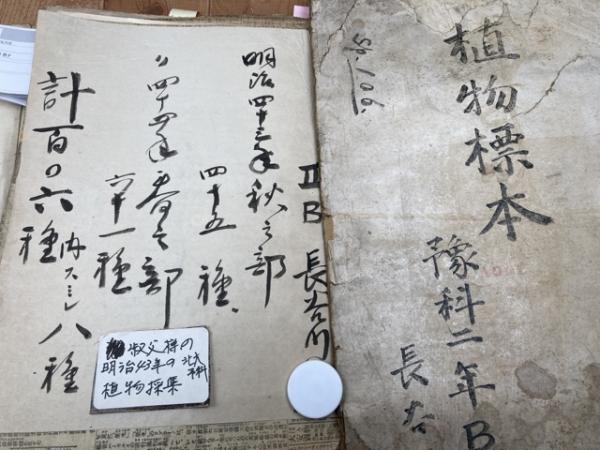 植物標本
豫科二年B
長谷
45/106.
II B 長谷川
明治四十三年秋之部
四十五種、
〃四十四年春之部
六十一種
計百〇六種
内スミレ八種
叔父様の
明治43年の
北大
予科
植物採集